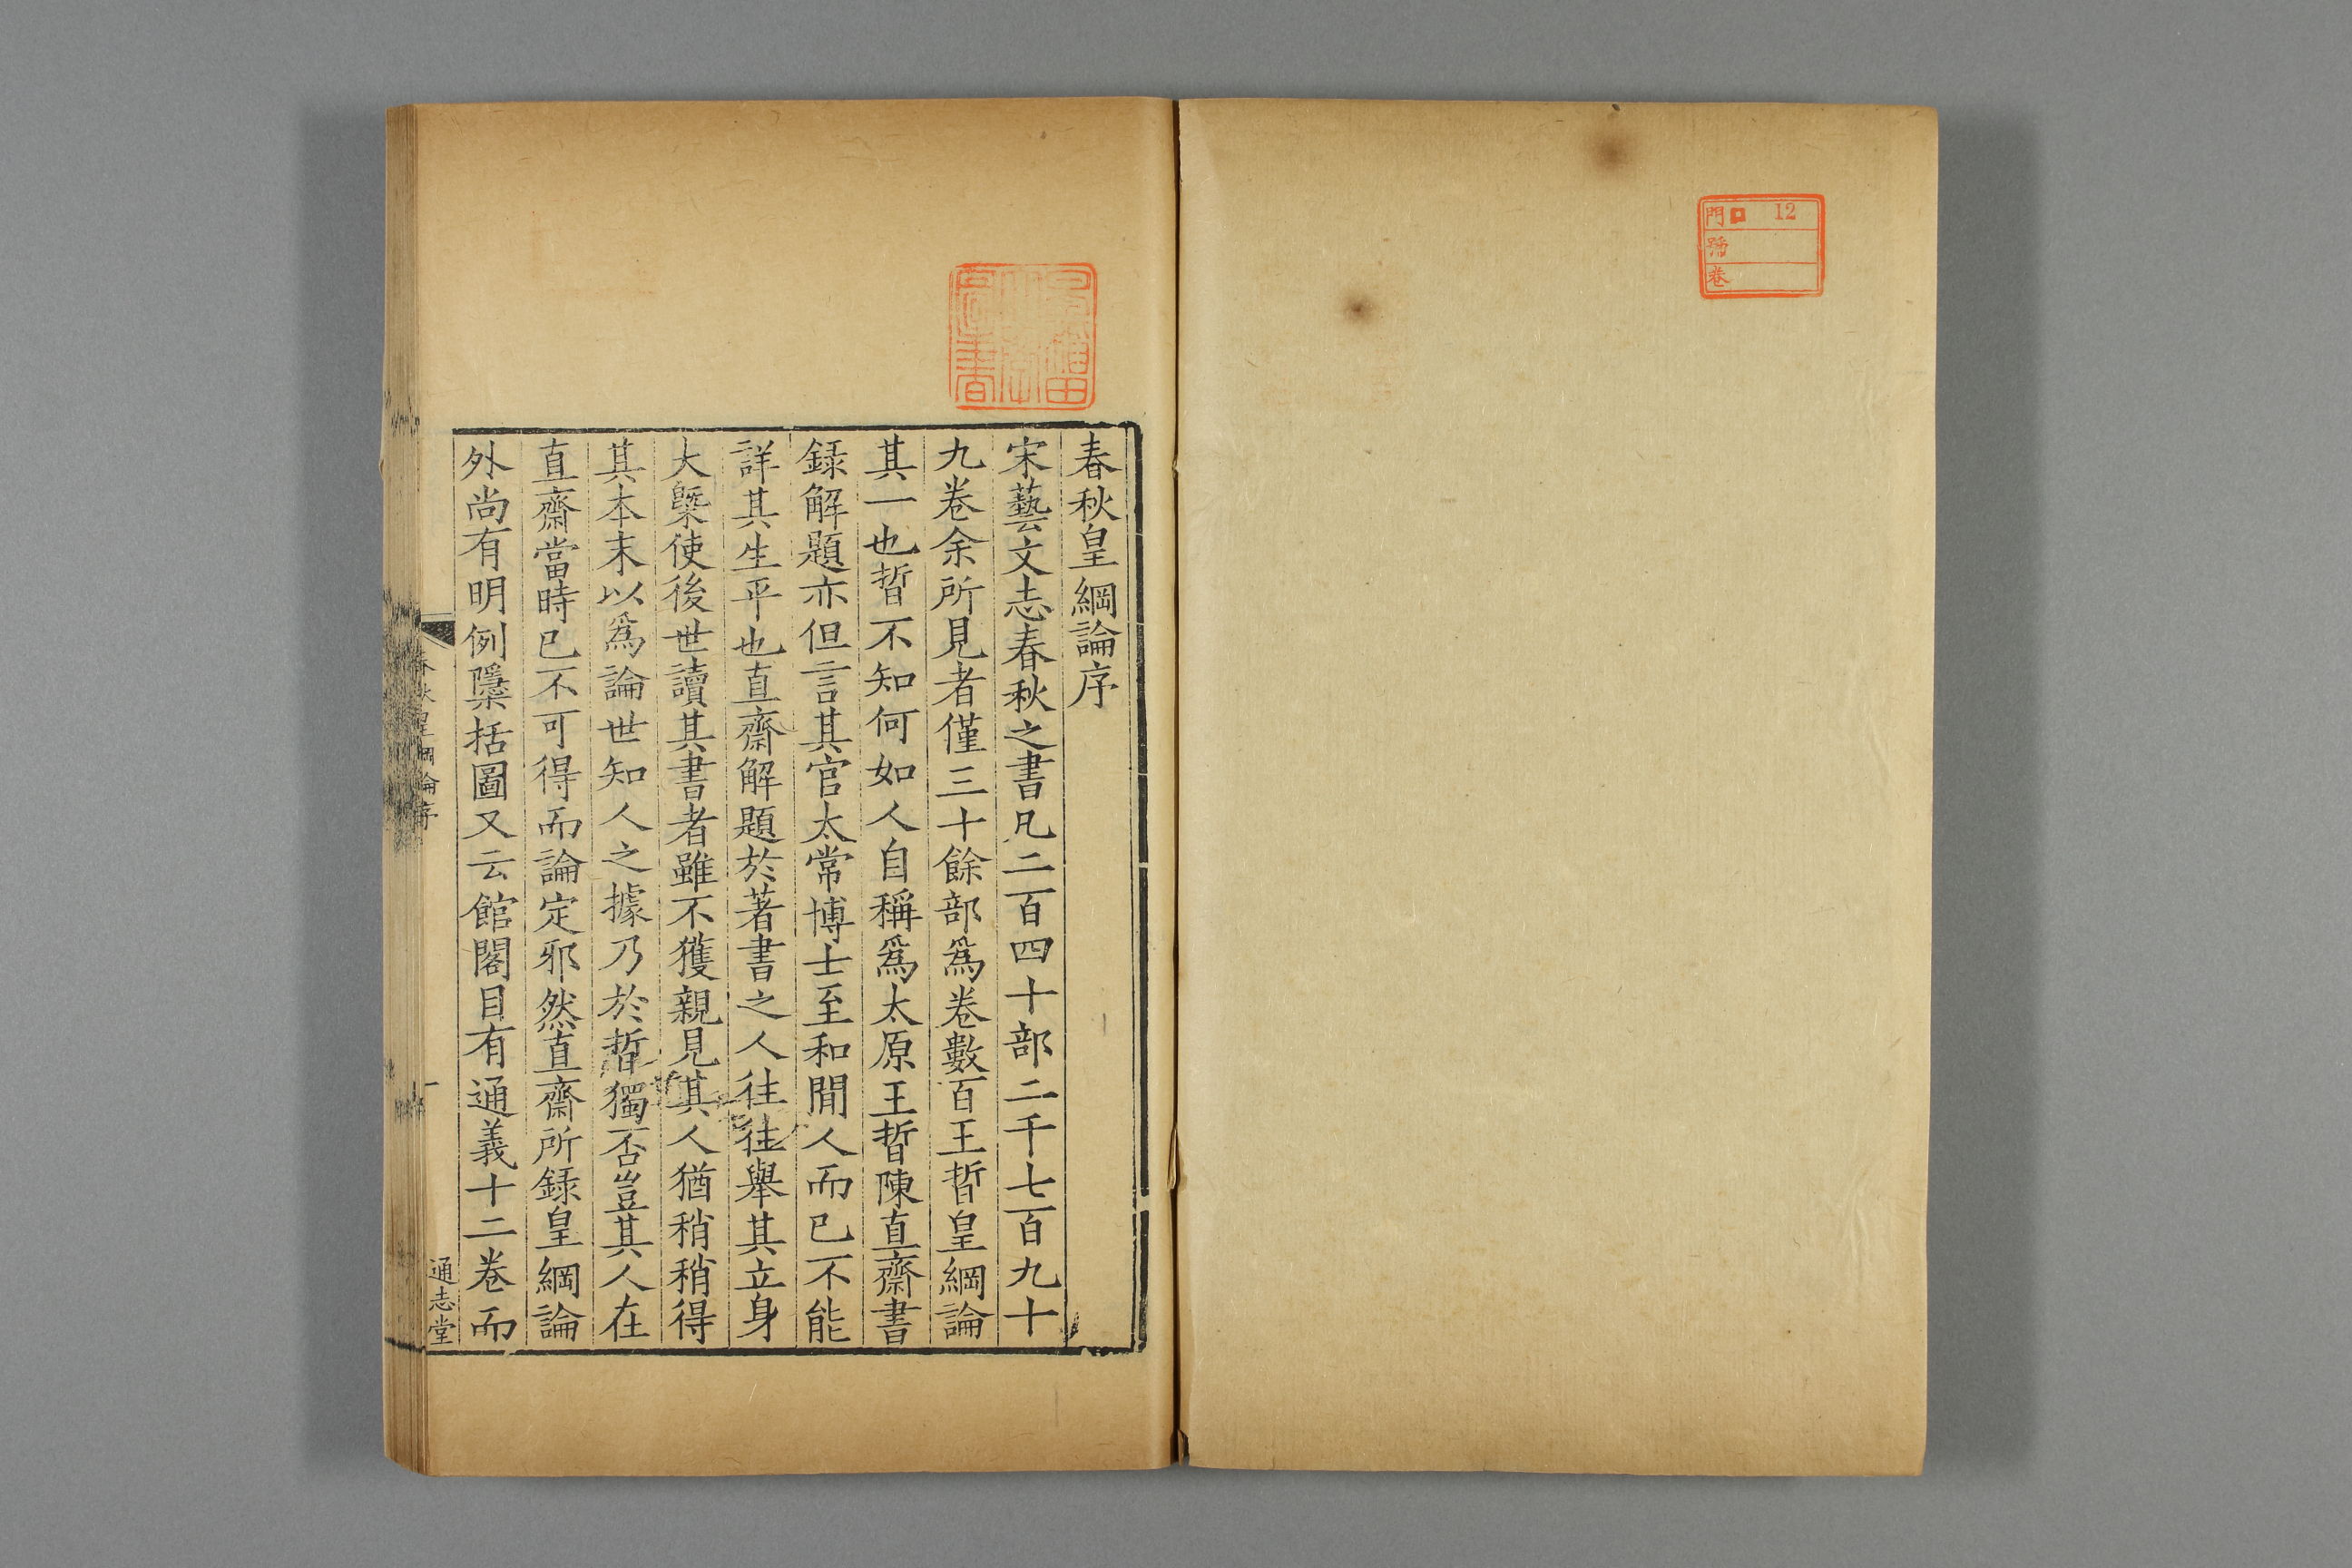 門 12
號
卷
春秋皇綱論序
宋藝文志春秋之書凡二百四十部二千七百九十
九卷余所見者僅三十餘部爲卷數百王晳皇綱論
其一也晳不知何如人自稱爲太原王晳陳直齋書
録解題亦但言其官太常博士至和間人而已不能
詳其生平也直齋解題於著書之人往往舉其立身
大槩使後世讀其書者雖不獲親見其人猶稍稍得
其本末以爲論世知人之據乃於晳獨否豈其人在
直齋當時已不可得而論定邪然直齋所録皇綱論
外尚有明例隱括圖又云館閣目有通義十二卷而
春秋皇綱論序
一
通志堂